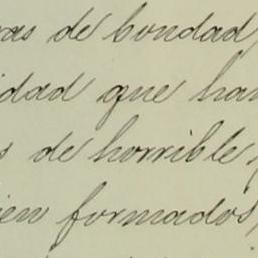 ras de bondad
idad que han
s de horrible
ien formados,